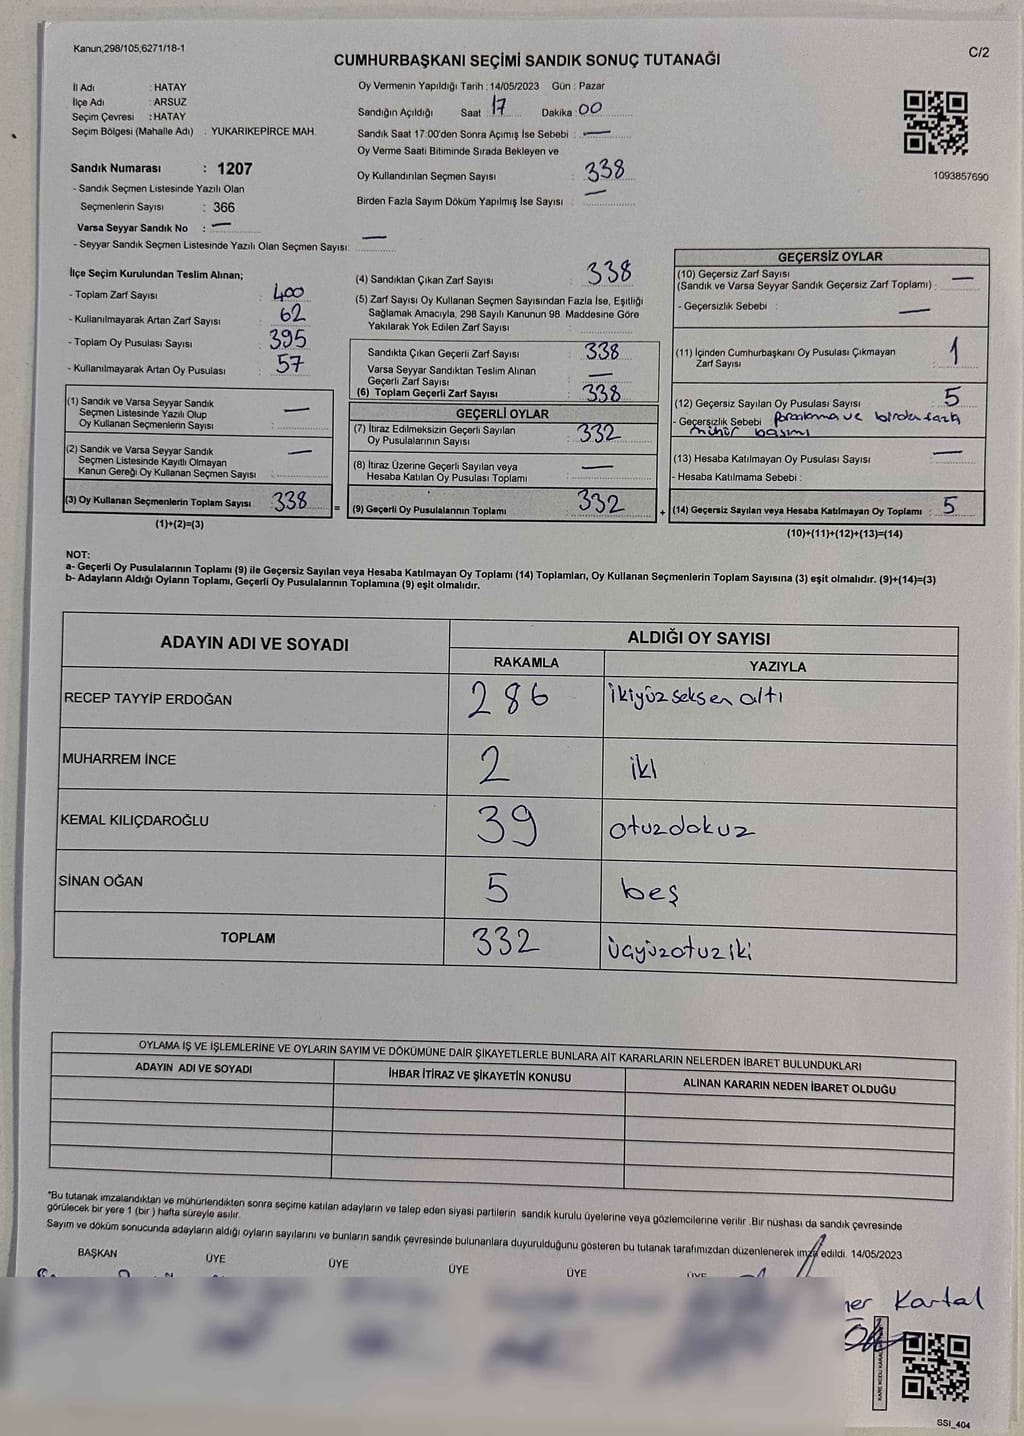 Kanun,298/105,6271/18-1
C/2
CUMHURBAŞKANI SEÇİMİ SANDIK SONUÇ TUTANAĞI
İl Adı : HATAY
İlçe Adı : ARSUZ
Seçim Çevresi : HATAY
Seçim Bölgesi (Mahalle Adı) : YUKARIKEPİRCE MAH.
Oy Vermenin Yapıldığı Tarih : 14/05/2023 Gün : Pazar
Sandığın Açıldığı Saat 17 Dakika : 00
Sandık Saat 17.00'den Sonra Açımış İse Sebebi : —
Oy Verme Saati Bitiminde Sırada Bekleyen ve
Oy Kullandırılan Seçmen Sayısı : 338
Birden Fazla Sayım Döküm Yapılmış İse Sayısı : —
1093857690
Sandık Numarası : 1207
- Sandık Seçmen Listesinde Yazılı Olan
Seçmenlerin Sayısı : 366
Varsa Seyyar Sandık No : —
- Seyyar Sandık Seçmen Listesinde Yazılı Olan Seçmen Sayısı: —
İlçe Seçim Kurulundan Teslim Alınan;
- Toplam Zarf Sayısı : 400
- Kullanılmayarak Artan Zarf Sayısı : 62
- Toplam Oy Pusulası Sayısı : 395
- Kullanılmayarak Artan Oy Pusulası : 57
(1) Sandık ve Varsa Seyyar Sandık
Seçmen Listesinde Yazılı Olup
Oy Kullanan Seçmenlerin Sayısı : —
(2) Sandık ve Varsa Seyyar Sandık
Seçmen Listesinde Kayıtlı Olmayan
Kanun Gereği Oy Kullanan Seçmen Sayısı : —
(3) Oy Kullanan Seçmenlerin Toplam Sayısı : 338
(1)+(2)=(3)
(4) Sandıktan Çıkan Zarf Sayısı : 338
(5) Zarf Sayısı Oy Kullanan Seçmen Sayısından Fazla İse, Eşitliği
Sağlamak Amacıyla, 298 Sayılı Kanunun 98. Maddesine Göre
Yakılarak Yok Edilen Zarf Sayısı :
Sandıkta Çıkan Geçerli Zarf Sayısı : 338
Varsa Seyyar Sandıktan Teslim Alınan
Geçerli Zarf Sayısı : —
(6) Toplam Geçerli Zarf Sayısı : 338
GEÇERLİ OYLAR
(7) İtiraz Edilmeksizin Geçerli Sayılan
Oy Pusulalarının Sayısı : 332
(8) İtiraz Üzerine Geçerli Sayılan veya
Hesaba Katılan Oy Pusulası Toplamı : —
= (9) Geçerli Oy Pusulalarının Toplamı : 332
GEÇERSİZ OYLAR
(10) Geçersiz Zarf Sayısı
(Sandık ve Varsa Seyyar Sandık Geçersiz Zarf Toplamı) : —
- Geçersizlik Sebebi : —
(11) İçinden Cumhurbaşkanı Oy Pusulası Çıkmayan
Zarf Sayısı : 1
(12) Geçersiz Sayılan Oy Pusulası Sayısı : 5
- Geçersizlik Sebebi : ve birden fazla
mühür basımı
(13) Hesaba Katılmayan Oy Pusulası Sayısı : —
- Hesaba Katılmama Sebebi :
+ (14) Geçersiz Sayılan veya Hesaba Katılmayan Oy Toplamı : 5
(10)+(11)+(12)+(13)=(14)
NOT:
a- Geçerli Oy Pusulalarının Toplamı (9) ile Geçersiz Sayılan veya Hesaba Katılmayan Oy Toplamı (14) Toplamları, Oy Kullanan Seçmenlerin Toplam Sayısına (3) eşit olmalıdır. (9)+(14)=(3)
b- Adayların Aldığı Oyların Toplamı, Geçerli Oy Pusulalarının Toplamına (9) eşit olmalıdır.
ADAYIN ADI VE SOYADI
ALDIĞI OY SAYISI
RAKAMLA YAZIYLA
RECEP TAYYİP ERDOĞAN 286 ikiyüz seksen altı
MUHARREM İNCE 2 iki
KEMAL KILIÇDAROĞLU 39 otuzdokuz
SİNAN OĞAN 5 beş
TOPLAM 332 üçyüzotuziki
OYLAMA İŞ VE İŞLEMLERİNE VE OYLARIN SAYIM VE DÖKÜMÜNE DAİR ŞİKAYETLERLE BUNLARA AİT KARARLARIN NELERDEN İBARET BULUNDUKLARI
ADAYIN ADI VE SOYADI İHBAR İTİRAZ VE ŞİKAYETİN KONUSU ALINAN KARARIN NEDEN İBARET OLDUĞU
*Bu tutanak imzalandıktan ve mühürlendikten sonra seçime katılan adayların ve talep eden siyasi partilerin sandık kurulu üyelerine veya gözlemcilerine verilir .Bir nüshası da sandık çevresinde
görülecek bir yere 1 (bir ) hafta süreyle asılır.
Sayım ve döküm sonucunda adayların aldığı oyların sayılarını ve bunların sandık çevresinde bulunanlara duyurulduğunu gösteren bu tutanak tarafımızdan düzenlenerek imza edildi. 14/05/2023
BAŞKAN ÜYE ÜYE ÜYE ÜYE ÜYE
Kartal
SSI_404